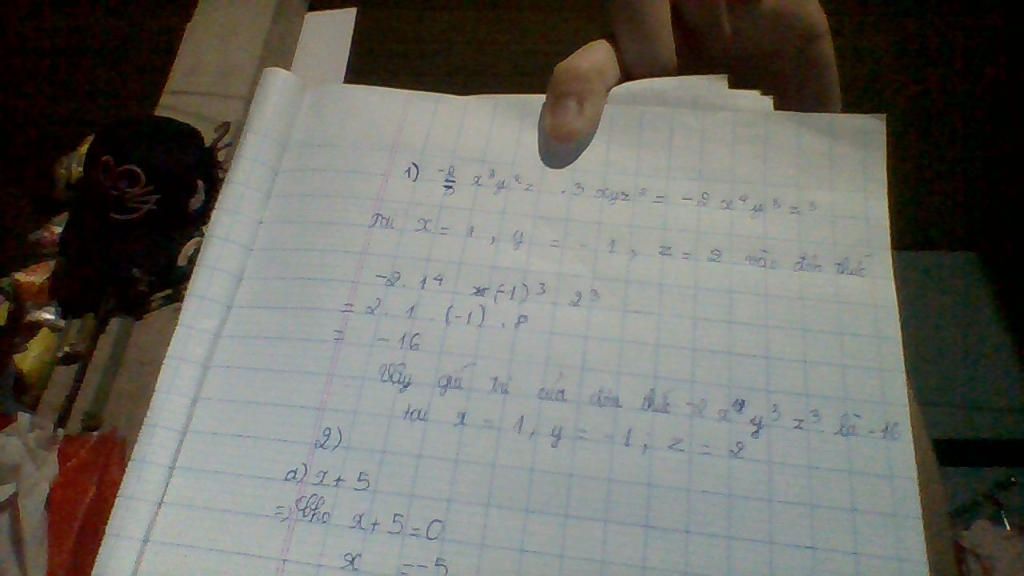 1) -2/3 x³y²z . 3 xyz² = -2 x⁴y³z³
Tại x = 1 , y = -1 , z = 2 vào đơn thức
-2 . 1⁴ (-1)³ 2³
= 2 . 1 . (-1) . 8
= -16
Vậy giá trị của đơn thức -2 x⁴y³z³ là -16
tại x = 1 , y = -1 , z = 2
2)
a) x + 5
=> Cho x + 5 = 0
x = -5